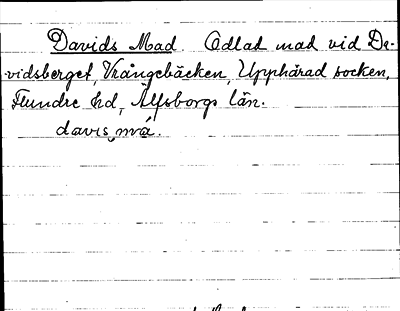 Davids Mad. Odlad mad vid Da-
vidsberget, Vrångebäcken, Upphärad socken,
Flundre hd, Älfsborgs län.
davis,mvá.